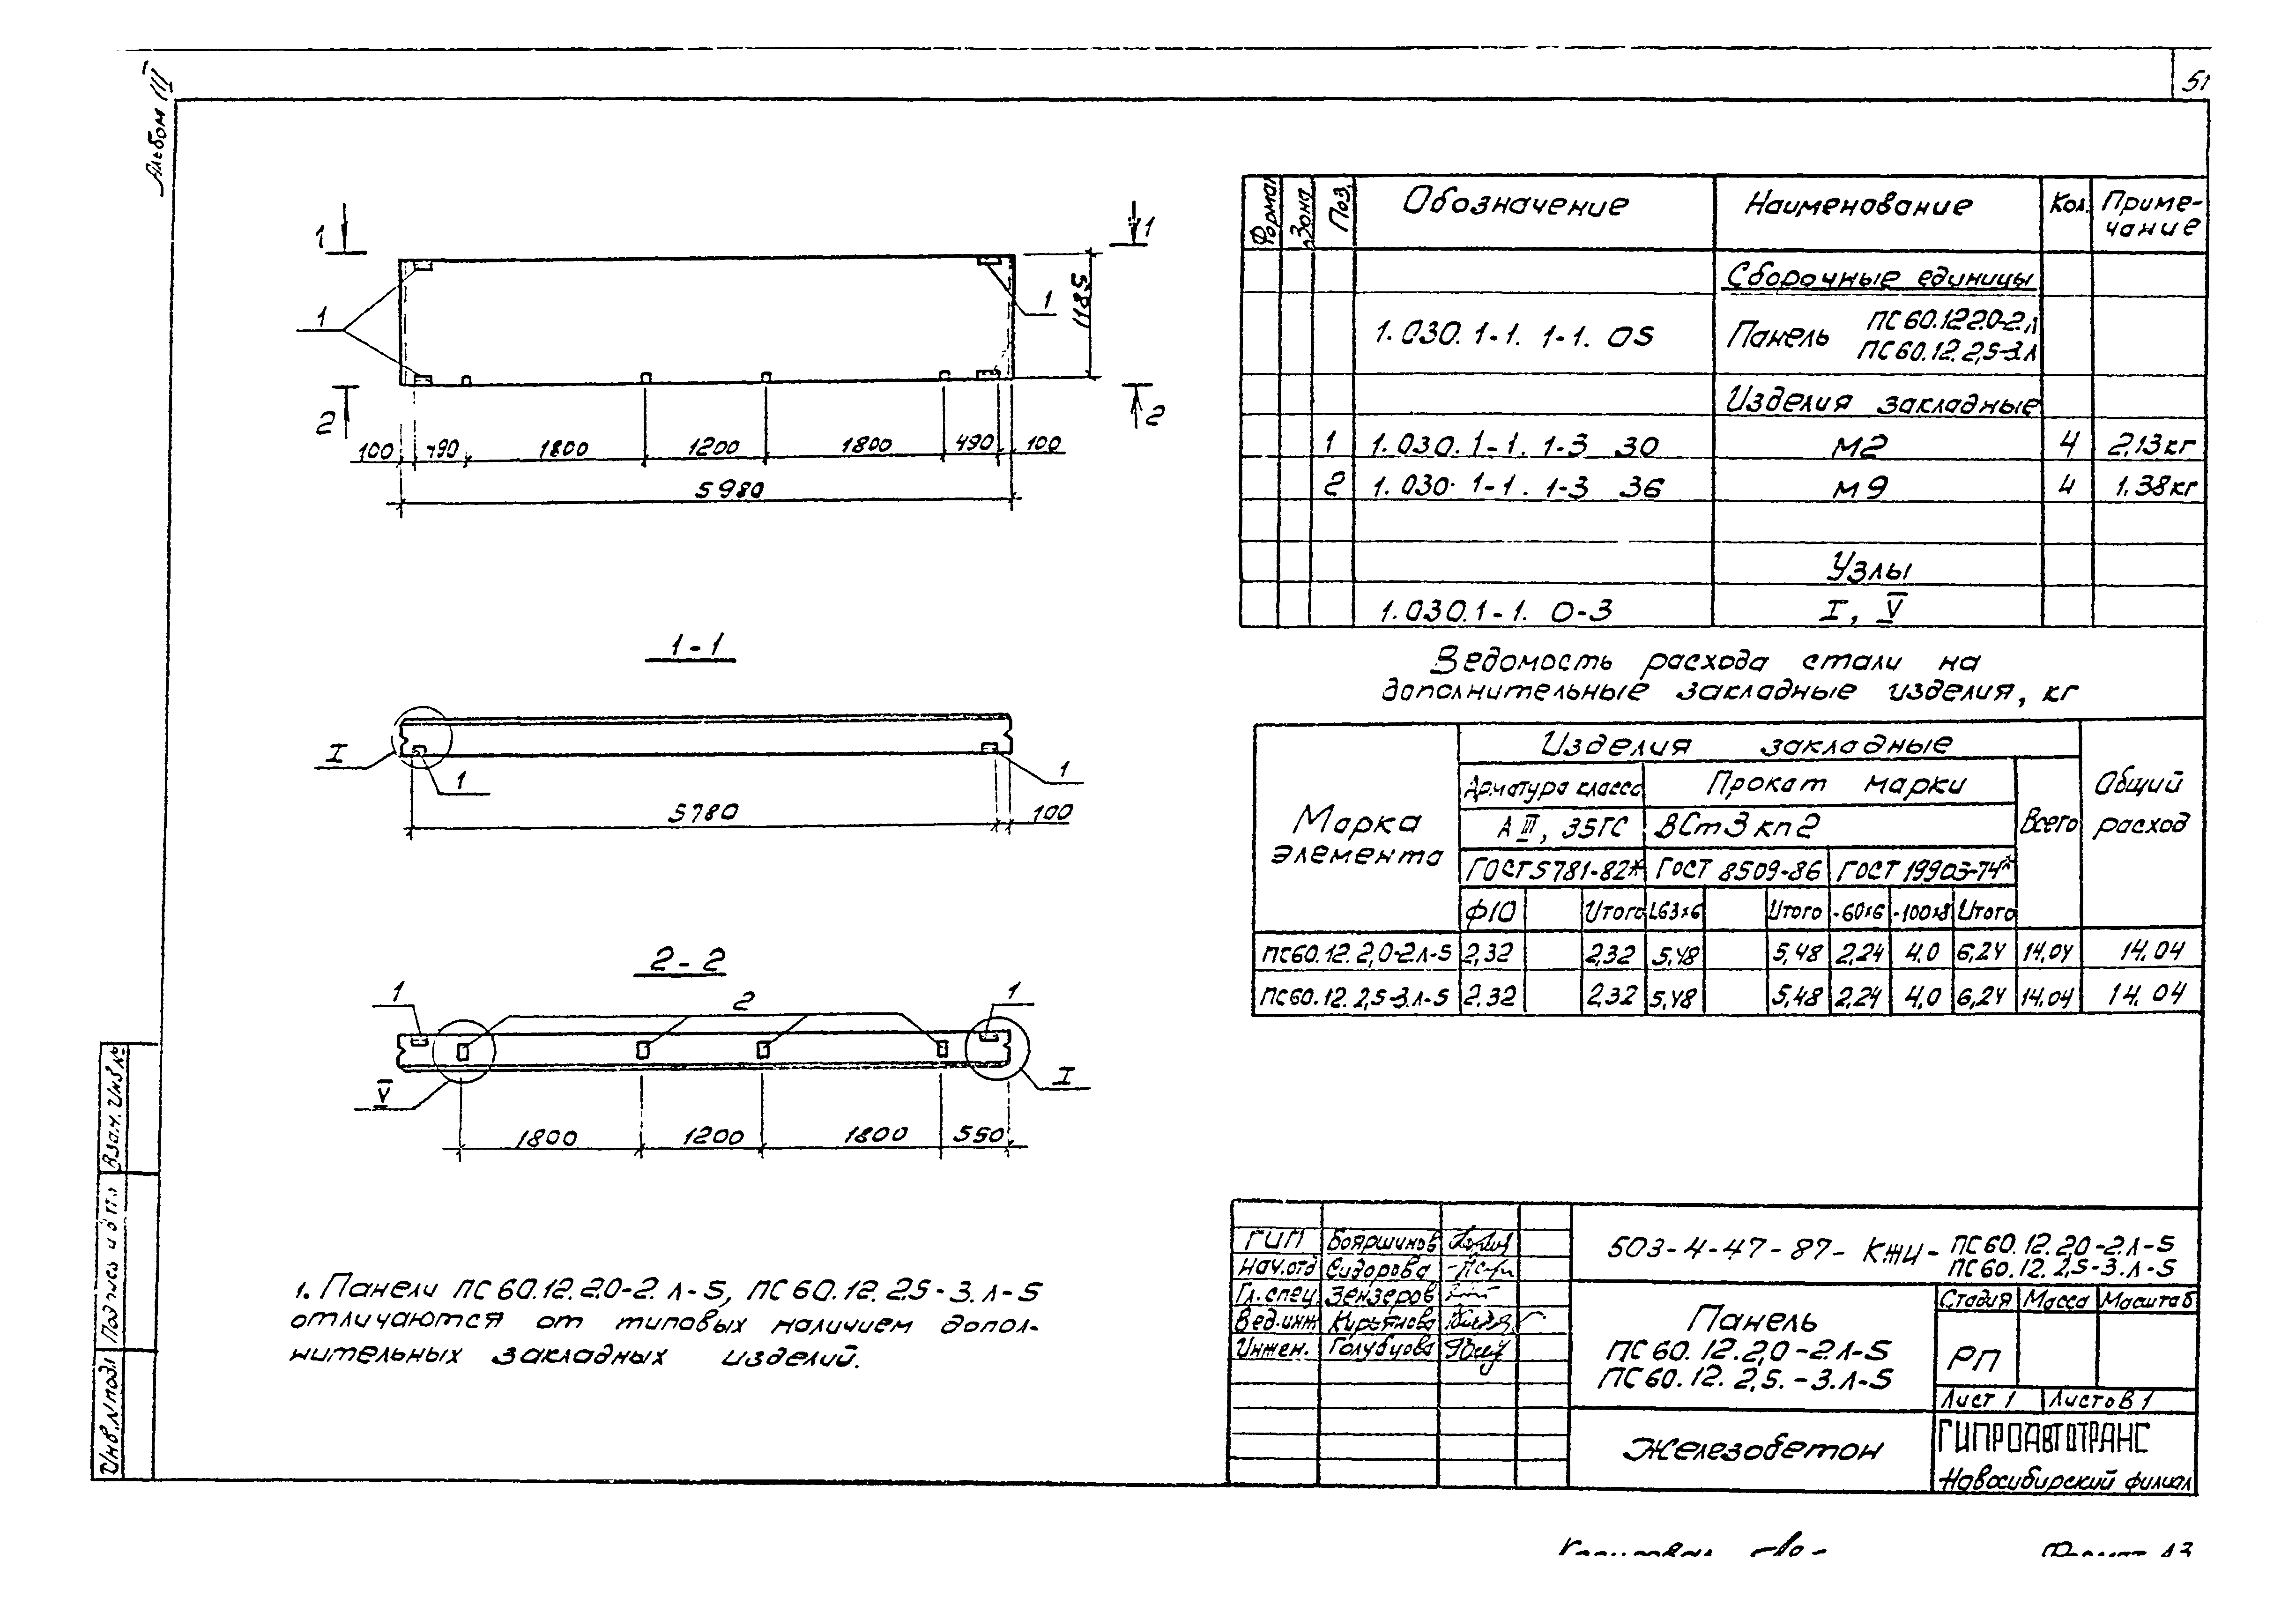 51
Альбом III
1 1
1 1
1185
2 2
100 490 1800 1200 1800 490 100
5980
1-1
I
1 1
5780 100
2-2
1 2 1
V I
1800 1200 1800 550
1. Панели ПС 60.12.2.0-2. л-5, ПС 60.12. 2.5-3. л-5
отличаются от типовых наличием допол-
нительных закладных изделий.
Формат Зона Поз. Обозначение Наименование Кол. Приме-
чание
Сборочные единицы
1.030.1-1. 1-1. 05 Панель ПС 60.12.2.0-2.л
ПС 60.12. 2,5-3.л
Изделия закладные
1 1.030.1-1. 1-3 30 М2 4 2,13кг
2 1.030.1-1. 1-3 36 М9 4 1.38кг
Узлы
1.030.1-1. 0-3 I, V
Ведомость расхода стали на
дополнительные закладные изделия, кг
Марка элемента Изделия закладные Общий расход
Арматура класса Прокат марки Всего
А III, 35ГС ВСт3кп2
ГОСТ 5781-82* ГОСТ 8509-86 ГОСТ 19903-74*
Ф10 Итого L63х6 Итого -60х6 -100х8 Итого
ПС60.12. 2,0-2.л-5 2,32 2,32 5,48 5,48 2,24 4,0 6,24 14,04 14,04
ПС60.12. 2,5-3.л-5 2.32 2,32 5,48 5,48 2,24 4,0 6,24 14,04 14,04
ГИП Бояршинов
Нач.отд Сидорова
Гл. спец. Зензеров
Вед.инж Кирьянова
Инжен. Голубцова
503-4-47-87- КЖИ- ПС 60.12.2,0-2.л-5
ПС 60.12. 2,5-3.л-5
Панель
ПС 60.12.2,0-2.л-5
ПС 60.12. 2,5.-3.л-5
Стадия Масса Масштаб
РП
Лист 1 Листов 1
Железобетон
ГИПРОАВТОТРАНС
Новосибирский филиал
Взам. Инв №
Подпись и дата
Инв.N подл
Копировал
Формат А3